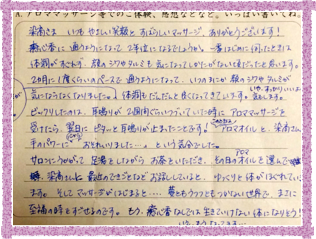 A. アロママッサージ等でのご体験、感想などなど。いっぱい書いてね。
さま いつもやさしい笑顔と すばらしいマッサージ、ありがとうございます!
癒心香に 通うようになって 2年位になるでしょうか。一番はじめに伺ったときは
体調がすぐれず、顔のシワやタルミも気になってしかたがない頃だったと思います。
20日に1度くらいのペースで 通うようになって、いつのまにか 顔のシワやタルミが
気にならなくなりました。体調もだんだんと良くなってきています。
びっくりしたのは、耳鳴りが 2週間くらいつづいていた時に アロママッサージを
受けたら、翌日に ピタッと耳鳴りが止まったことです。アロマオイルと、さん
手のパワーに おそれいりました…。という気分でした。
サロンにうかがって 足湯をしながら お茶をいただき、その日のオイルを選んで
さんに 最近のできごとなど お話していると、ゆっくりと 体がほぐれてい
ます。そして マッサージがはじまると…… 夢ともうつつともつかない世界で、まさに
至福の時をすごせるのです。もう、癒心香なしでは 生きていけない体になりそう!